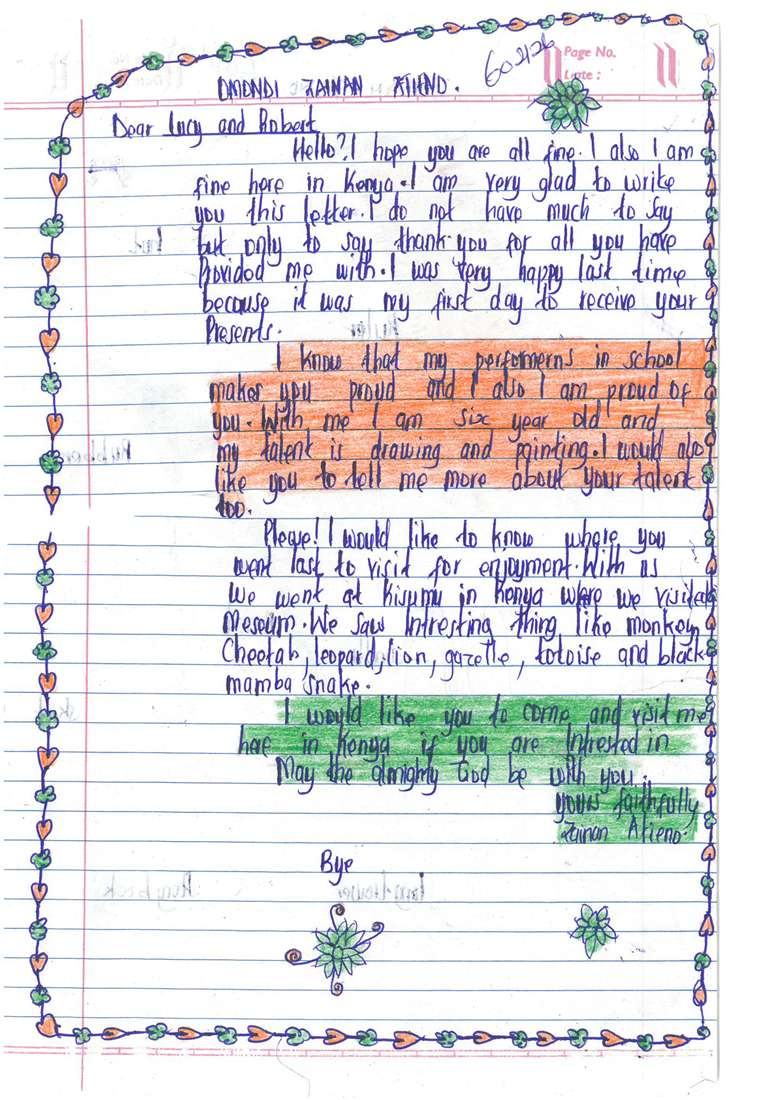 602126
Page No.
Date :
OMONDI ZAINAN ATIENO.
Dear Lucy and Robert
Hello? I hope you are all fine. I also I am
fine here in Kenya. I am very glad to write
you this letter. I do not have much to say
but only to say thank you for all you have
Provided me with. I was very happy last time
because it was my first day to receive your
Presents.
I know that my performerns in school
makes you proud and I also I am proud of
you. With me I am six year old and
my talent is drawing and painting. I would also
like you to tell me more about your talent
too.
Please! I would like to know where you
went last to visit for enjoyment. With us
We went at Kisumu in Kenya where we visited
Meseum. We saw Intresting thing like monkey
Cheetah, leopard, lion, gazelle, totoise and black
mamba snake.
I would like you to come and visit me
here in Kenya if you are Intrested in
May the almighty God be with you.
yours faithfully
Zainan Atieno.
Bye